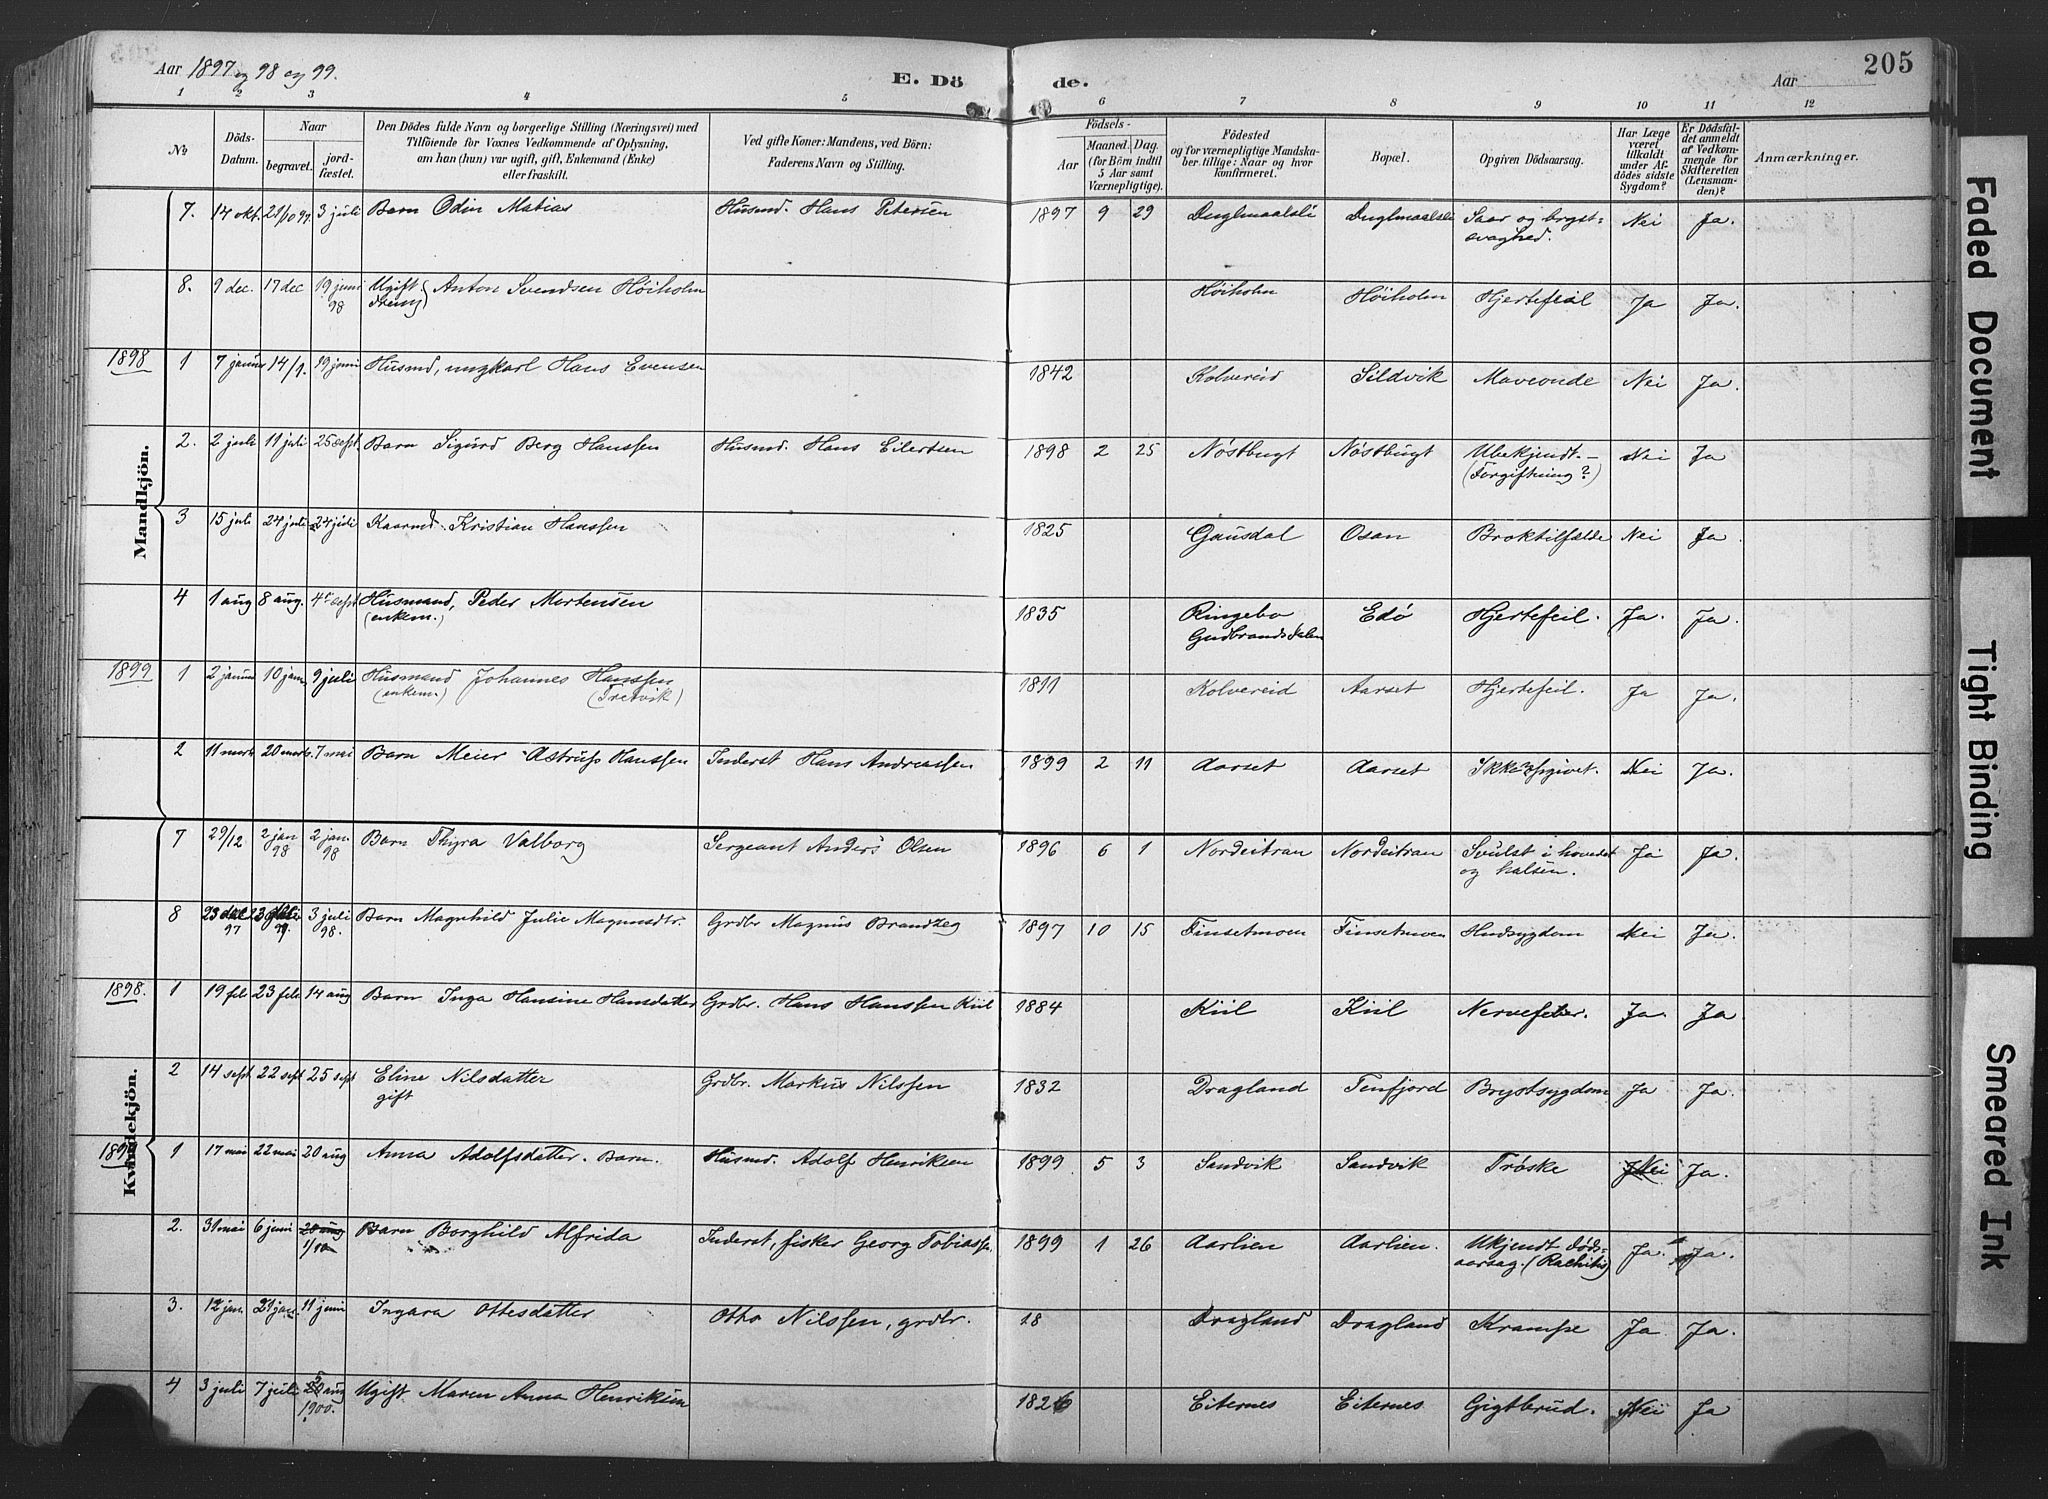 Aar 1897 og 98 og 99.
E. Dö de.
Aar
205
1 2 3 4 5 6 7 8 9 10 11 12
No
Döds-Datum.
Naar
begravet.
jord-fæstet.
Den Dödes fulde Navn og borgerlige Stilling (Næringsvei) med
Tilföiende for Voxnes Vedkommende af Oplysning,
om han (hun) var ugift, gift, Enkemand (Enke)
eller fraskilt.
Ved gifte Koner: Mandens, ved Börn:
Faderens Navn og Stilling.
Födsels-
Aar
Maaned. Dag.
(for Börn indtil
5 Aar samt
Værnepligtige).
Födested
og for værnepligtige Mandska-
ber tillige: Naar og hvor
konfirmeret.
Bopæl.
Opgiven Dödsaarsag.
Har Læge
været
tilkaldt
under Af-
dödes sidste
Sygdom?
Er Dödsfal-
det anmeldt
af Vedkom-
mende for
Skifteretten
(Lensman-
den)?
Anmærkninger.
Mandkjön.
7. 14 okt. 3 juli Barn Odin Matias Husmd. Hans Petersen 1897 9 29 Duglmaalsli Duglmaalsli Saar og bryst- Nei Ja.
svaghed.
8. 9 dec. 17 dec 19 juni 98 Ugift Anton Svendsen Höiholm Höiholm Höiholm Hjertefeil Ja Ja.
1898 1 7 januar 14/1. 19 juni Husmd, ungkarl Hans Evensen 1842 Kolvereid Sildvik Maveonde Nei Ja.
2. 2 juli 11 juli 25 sept. Barn Sigurd Berg Hanssen Husmd. Hans Eilertsen 1898 2 25 Nöstbugt Nöstbugt Ubekjendt- Nei Ja
(Forgiftning?)
3 15 juli 24 juli 24 juli Kaarmd. Kristian Hanssen 1825 Gausdal Osan Broktilfælde Nei Ja
4 1 aug 8 aug. 4 sept. Husmand, Peder Mortensen 1835 Ringebo Edö Hjertefeil. Ja. Ja.
(enkem.) Gudbrandsdalen
1899 1 2 januar 10 jan. 9 juli Husmand Johannes Hanssen 1811 Kolvereid Aarset Hjertefeil. Ja Ja.
(enkem.) (Tretvik)
2 11 marts 20 marts. 7 mai Barn Meier Astrup Hanssen Inderst Hans Andreassen 1899 2 11 Aarset Aarset Ikke opgivet. Nei Ja.
Kvindekjön.
7 29/12 2 jan 98 2 jan. 98 Barn Thyra Valborg Sergeant Anders Olsen 1896 6 1 Nordeitran Nordeitran Svulst i hovedet Ja Ja.
og halsen.
8 97 3 juli 98. Barn Magnhild Julie Magnusdtr. Grdbr Magnus Brandzeg 1897 10 15 Finsetmoen Finsetmoen Hudsygdom Nei Ja.
1898. 1 19 feb 23 feb 14 aug Barn Inga Hansine Hansdatter Grdbr. Hans Hanssen Kiil 1884 Kiil Kiil Nervefeber. Ja. Ja
2 14 sept 22 sept 25 sept Eline Nilsdatter Grdbr. Markus Nilssen 1832 Dragland Tenfjord Brystsygdom Ja Ja.
gift
1899 1 17 mai 22 mai 20 aug Anna Adolfsdatter. Barn. Husmd. Adolf Henriksen 1899 5 3 Sandvik Sandvik Tröske Nei Ja.
2. 31 mai 6 juni 20 aug 1/10 Barn Borghild Alfrida Inderst, fisker Georg Tobiassen. 1899 1 26 Aarlien Aarlien. Ukjendt döds- Ja. Ja.
aarsag. (Rachitis)
3. 12 jan. 21 jan. 11 juni Ingara Ottesdatter Otto Nilssen, grdbr. 18 Dragland Dragland Krampe Ja Ja.
4 3 juli 7 juli aug 1900. Ugift Maren Anna Henriksen 1826 Eiternes Eiternes Gigtbrud. Nei Ja
Faded Document
Tight Binding
Smeared Ink